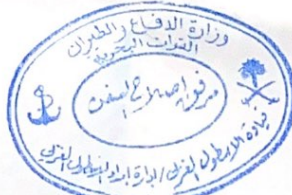 وزارة الدفاع والطيران
القوات البحرية
مرفق إصلاح السفن
قيادة الاسطول الغربي / إدارة إمداد الاسطول الغربي